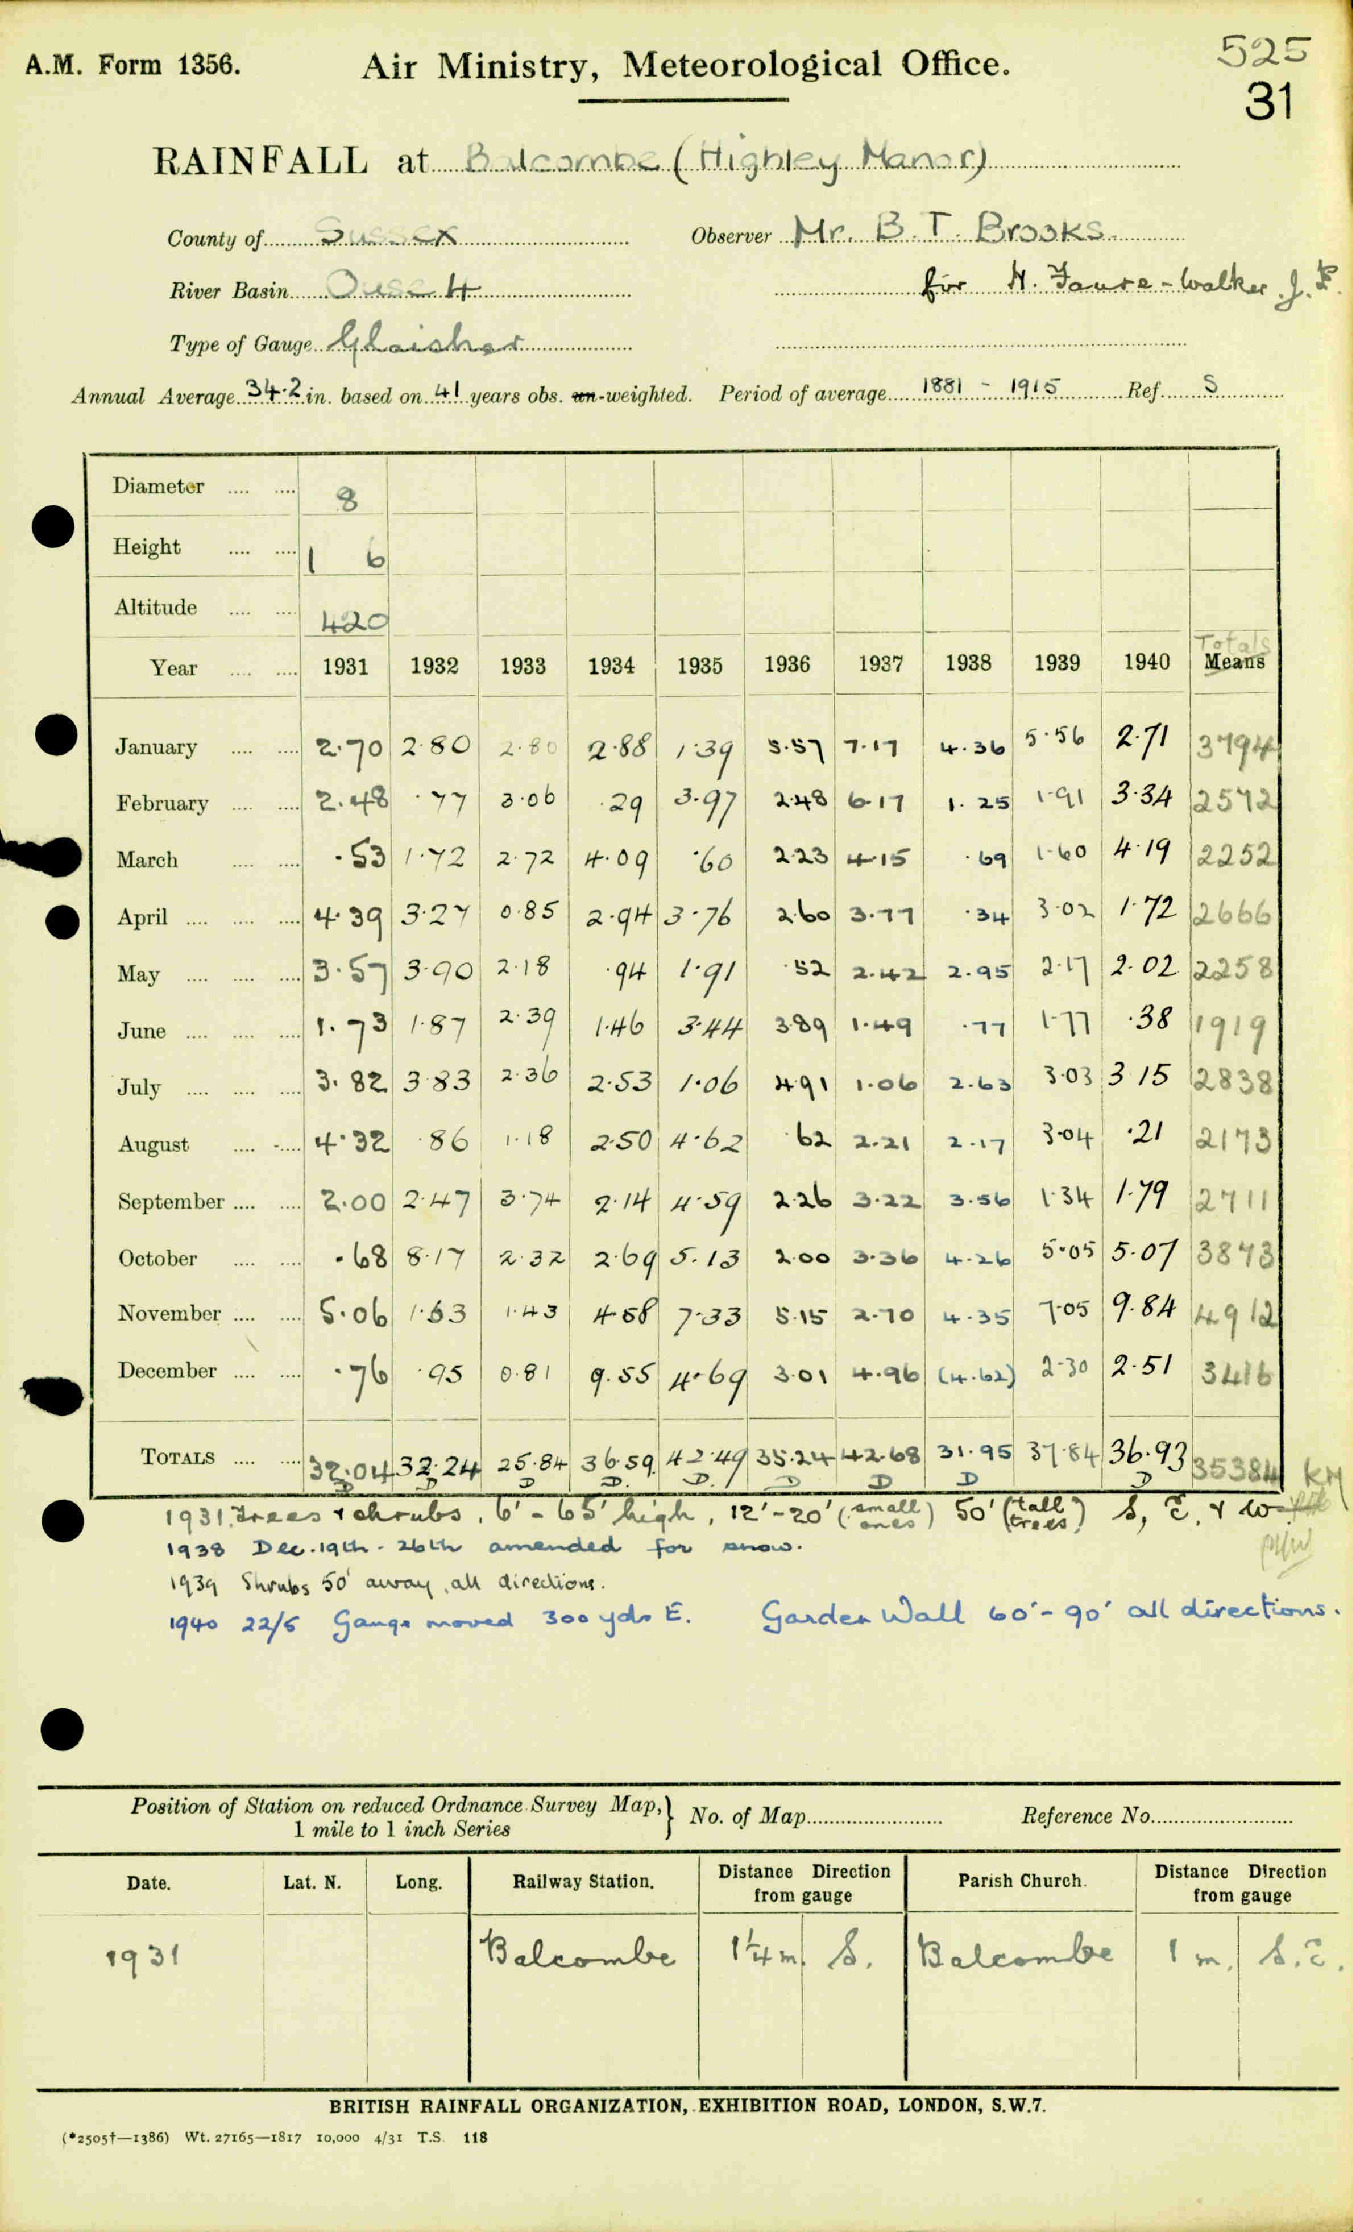 A.M. Form 1356.
Air Ministry, Meteorological Office.
525
31
RAINFALL at Balcombe (Highley Manor)
County of Sussex Observer Mr. B. T. Brooks.
River Basin Ouse 4 for H. Faure-Walker J.P.
Type of Gauge Glaisher
Annual Average 34.2 in. based on 41 years obs. un-weighted. Period of average 1881 - 1915 Ref. S
Diameter 8
Height 1 6
Altitude 420
Totals
Year 1931 1932 1933 1934 1935 1936 1937 1938 1939 1940 Means
January 2.70 2.80 2.80 2.88 1.39 5.57 7.17 4.36 5.56 2.71 3794
February 2.48 .77 3.06 .29 3.97 2.48 6.17 1.25 1.91 3.34 2572
March .53 1.72 2.72 4.09 .60 2.23 4.15 .69 1.60 4.19 2252
April 4.39 3.27 0.85 2.94 3.76 2.60 3.77 .34 3.02 1.72 2666
May 3.57 3.90 2.18 .94 1.91 .52 2.42 2.95 2.17 2.02 2258
June 1.73 1.87 2.39 1.46 3.44 3.89 1.49 .77 1.77 .38 1919
July 3.82 3.83 2.36 2.53 1.06 4.91 1.06 2.63 3.03 3.15 2838
August 4.32 .86 1.18 2.50 4.62 .62 2.21 2.17 3.04 .21 2173
September 2.00 2.47 3.74 2.14 4.59 2.26 3.22 3.56 1.34 1.79 2711
October .68 8.17 2.32 2.69 5.13 2.00 3.36 4.26 5.05 5.07 3873
November 5.06 1.63 1.43 4.58 7.33 5.15 2.70 4.35 7.05 9.84 4912
December .76 .95 0.81 9.55 4.69 3.01 4.96 (4.62) 2.30 2.51 3416
TOTALS 32.04 32.24 25.84 36.59 42.49 35.24 42.68 31.95 37.84 36.93 35384 KM
D D D D. D. D D D D
1931. Trees & shrubs, 6' - 65' high, 12'-20' (small ones) 50' (tall trees) S, E, & W
1938 Dec. 19th - 26th amended for snow.
1939 Shrubs 50' away, all directions.
1940 22/5 Gauge moved 300 yds E. Garden Wall 60'-90' all directions.
Position of Station on reduced Ordnance Survey Map, } No. of Map Reference No.
1 mile to 1 inch Series
Date. Lat. N. Long. Railway Station. Distance Direction from gauge Parish Church. Distance Direction from gauge
1931 Balcombe 1¼ m. S. Balcombe 1 m. S.E.
BRITISH RAINFALL ORGANIZATION, EXHIBITION ROAD, LONDON, S.W.7.
(*2505†—1386) Wt. 27165—1817 10,000 4/31 T.S. 118